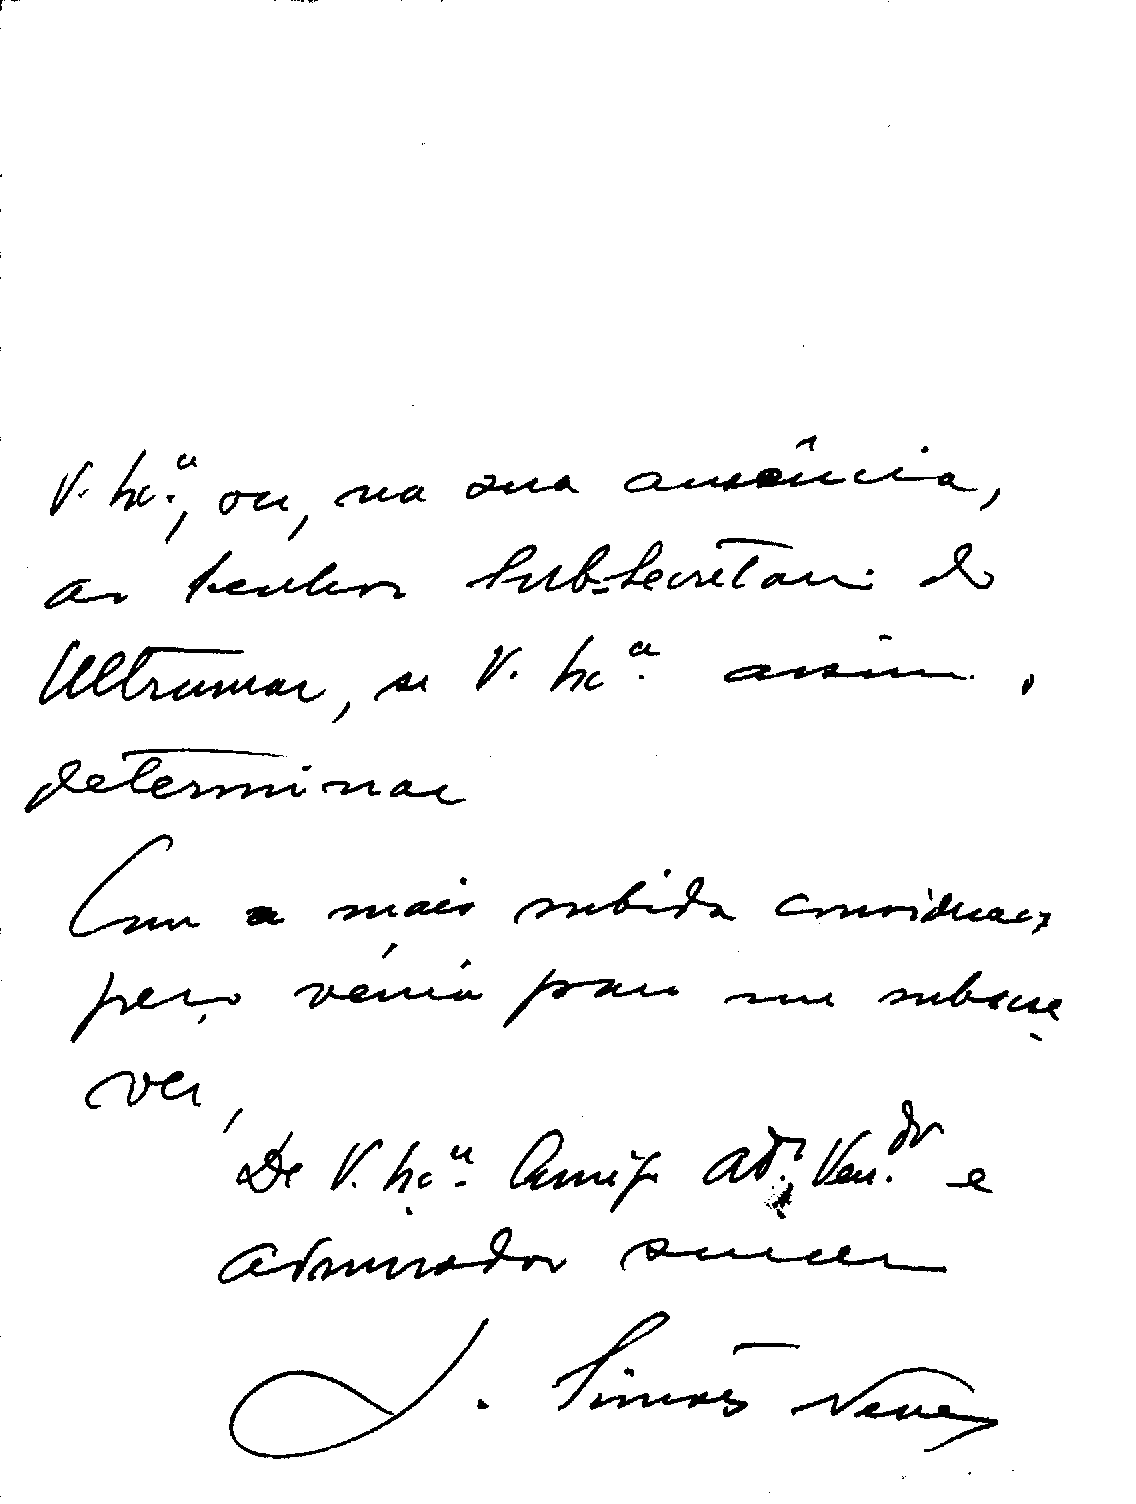 V. Exª., ou, na sua ausência,
ao Senhor Sub-Secretário do
Ultramar, se V. Exª. assim o
determinar
Com a mais subida consideração
peço vénia para me subscre
ver,
De V. Exª. Amigo Ven.dor e
admirador sincero
J. Simões Neves